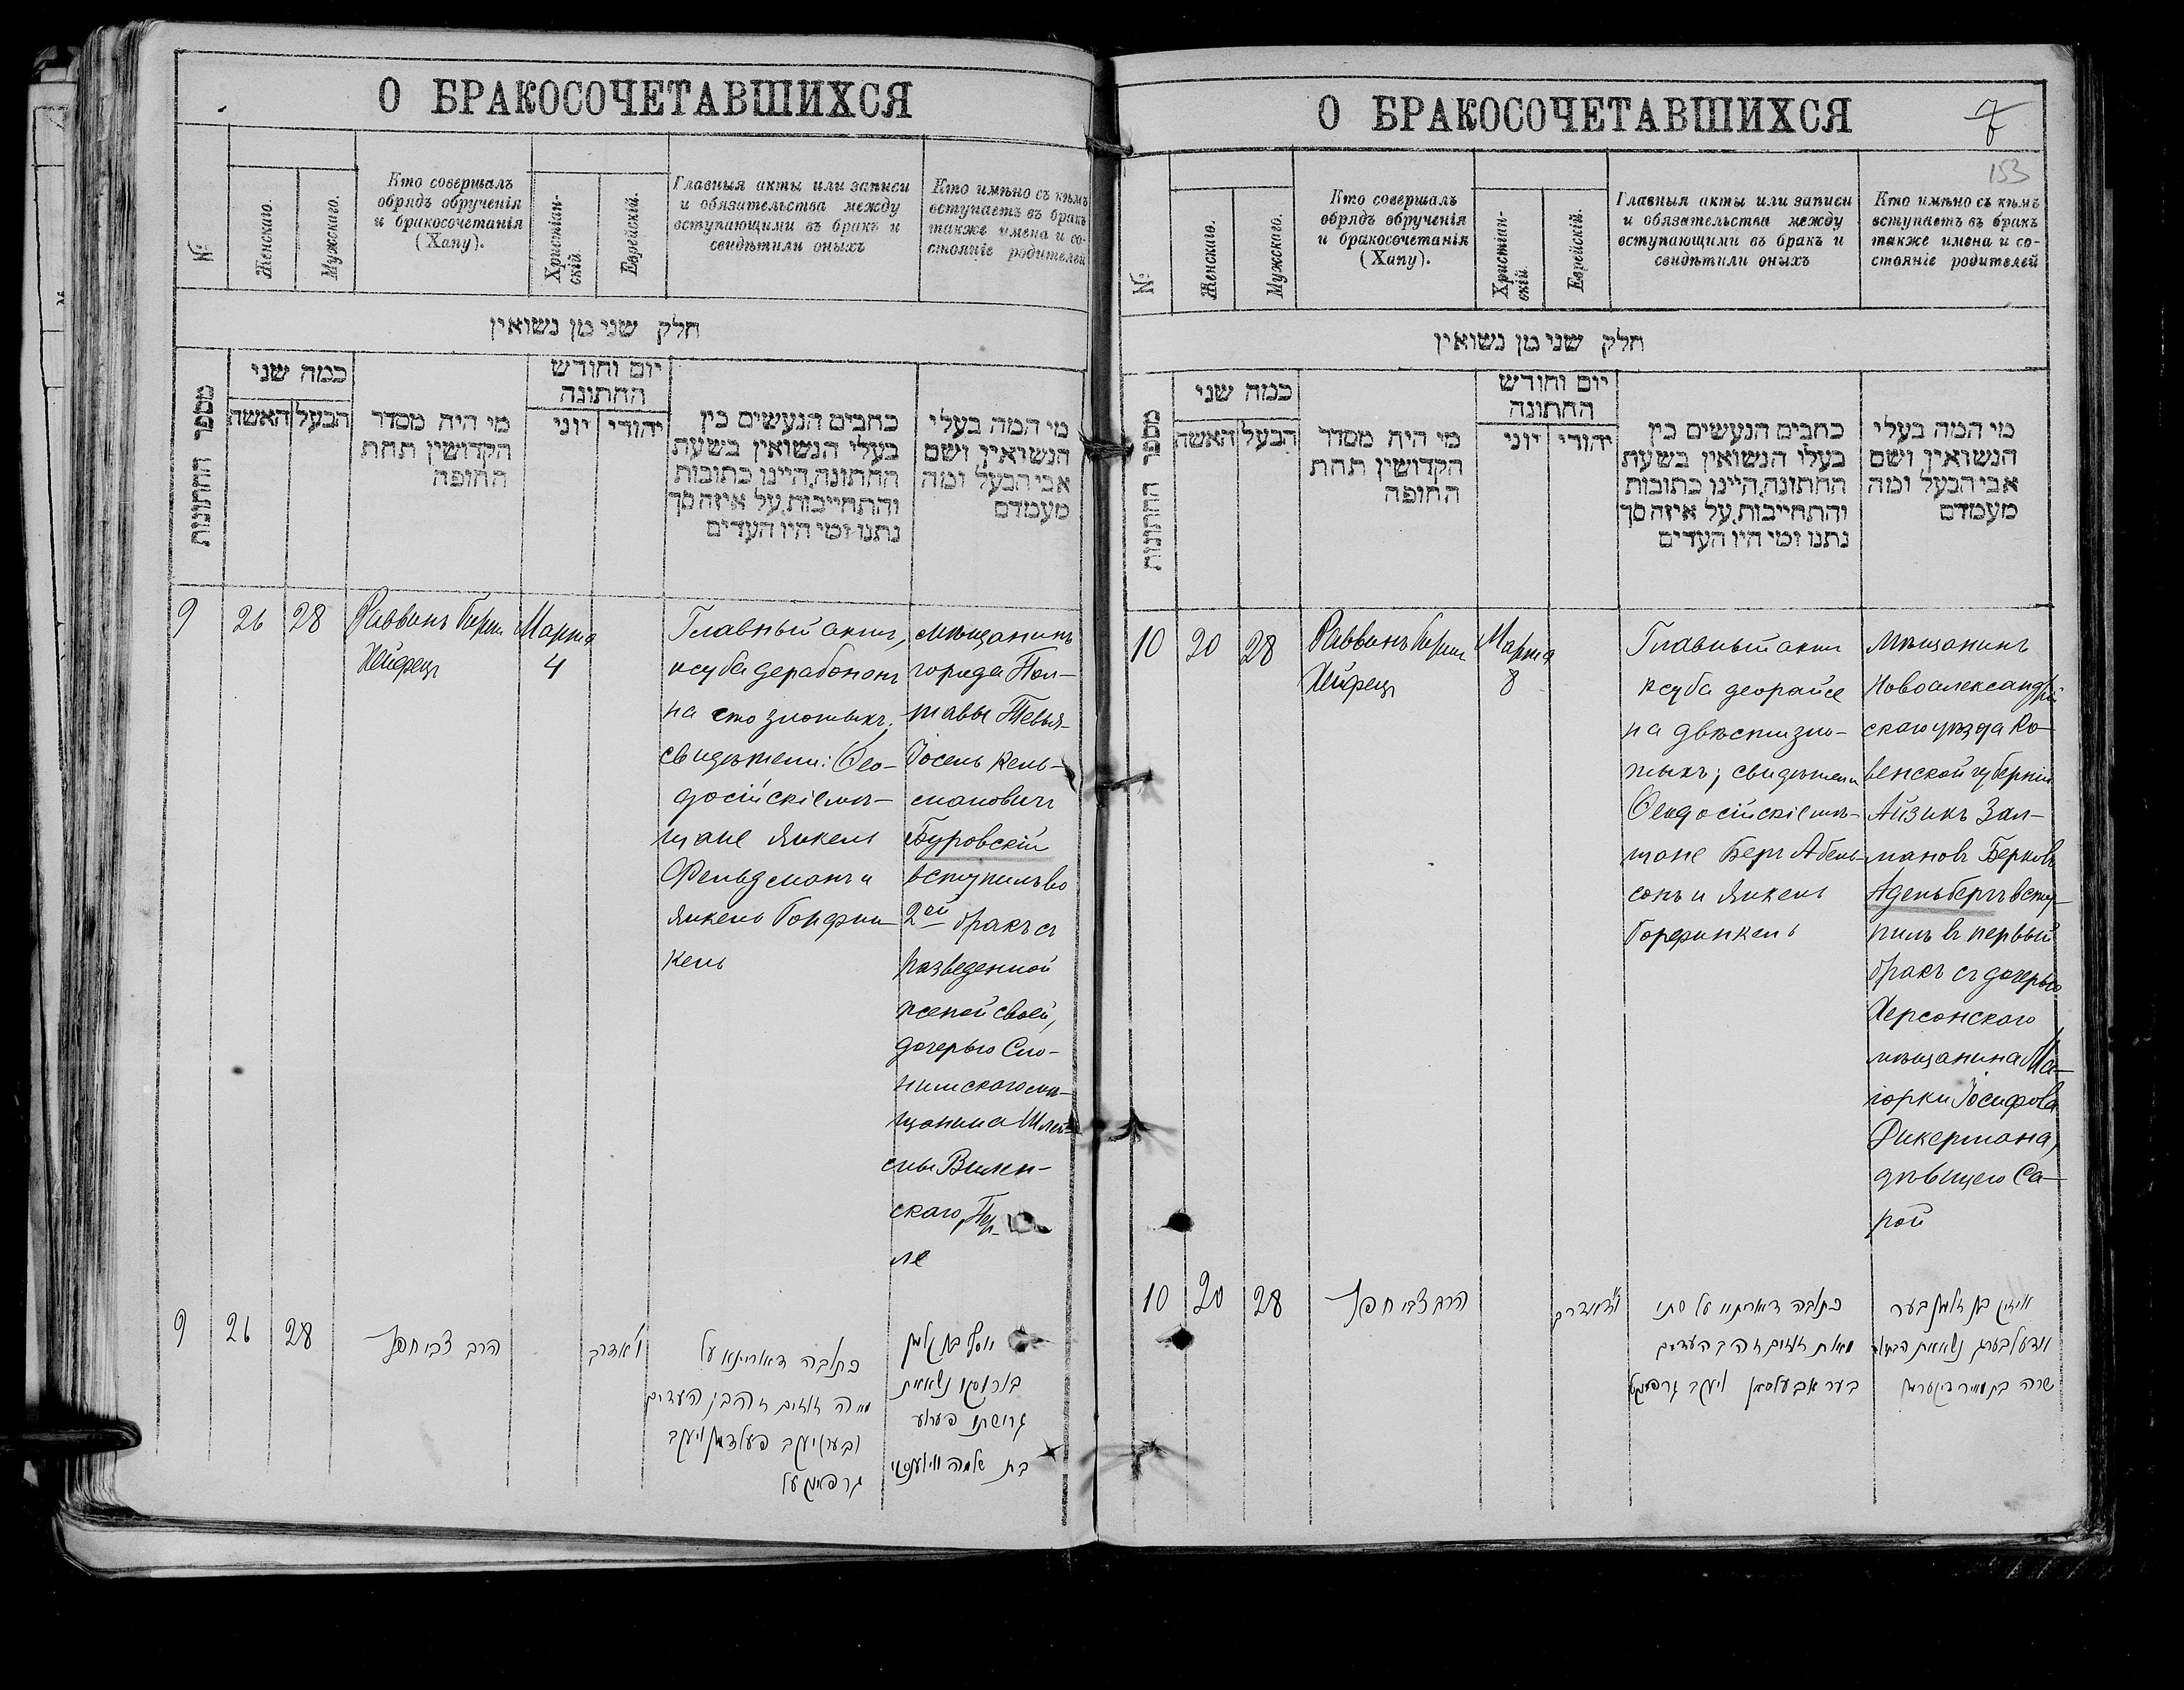 О БРАКОСОЧЕТАВШИХСЯ
№
Женскаго.
Мужскаго.
Кто совершалъ
обрядъ обрученія
и бракосочетанія
(Хапу).
Христіан-
скій.
Еврейскій.
Главныя акты или записи
и обязательства между
вступающими въ бракъ и
свидѣтили оныхъ
Кто имѣно съ кѣмъ
вступаетъ въ бракъ
также имена и со-
стояніе родителей
חלק שני מן נשואין
מספר החתונות
כמה שני
האשה
הבעל
מי היה מסדר
הקדושין תחת
החופה
יום וחודש
החתונה
יוני
יהודי
כתבים הנעשים בין
בעלי הנשואין בשעת
החתונה, היינו כתובות
והתחייבות, על איזה סך
נתנו ומי היו העדים
מי המה בעלי
הנשואין ושם
אבי הבעל ומה
מעמדם
9
26
28
Раввинъ Берки
Хейфецъ
Марта
4
Главный актъ,
ксуба дерабононъ
на сто злотыхъ;
свидѣтели: Ѳео-
досійскіе мѣ-
щане Янкель
Фельдманъ и
Янкель Горфин-
кель
мѣщанинъ
города Пол-
тавы Тевья-
Іосель Кель-
манович
Буровскій
вступилъ во
2ой бракъ съ
разведенной
женой своей,
дочерью Сло-
нимскаго мѣ-
щанина Шлей-
мы Вилен-
скаго, Пер-
ле
9
26
28
הרב צבי חפץ
ו' אדר ב
כתובה דאורייתא על
מאה זוזים זהב העדים
יעקב פעלדמן ויעקב
גרפינקעל
יוסף בן קלמן
בורוסקי נשא את
גרושתו פערלע
בת שלמה ווילענסקי
О БРАКОСОЧЕТАВШИХСЯ
7
153
№
Женскаго.
Мужскаго.
Кто совершалъ
обрядъ обрученія
и бракосочетанія
(Хапу).
Христіан-
скій.
Еврейскій.
Главныя акты или записи
и обязательства между
вступающими въ бракъ и
свидѣтили оныхъ
Кто имѣно съ кѣмъ
вступаетъ въ бракъ
также имена и со-
стояніе родителей
חלק שני מן נשואין
מספר החתונות
כמה שני
האשה
הבעל
מי היה מסדר
הקדושין תחת
החופה
יום וחודש
החתונה
יוני
יהודי
כתבים הנעשים בין
בעלי הנשואין בשעת
החתונה, היינו כתובות
והתחייבות, על איזה סך
נתנו ומי היו העדים
מי המה בעלי
הנשואין ושם
אבי הבעל ומה
מעמדם
10
20
28
Раввинъ Берки
Хейфецъ
Марта
8
Главный актъ
ксуба деорайсе
на двѣсти зло-
тыхъ; свидѣтели
Ѳеодосійскіе мѣ-
щане Беръ Абель-
сонъ и Янкель
Горфинкель
Мѣщанинъ
Новоалександрій-
скаго уѣзда Ко-
венской губерніи
Айзикъ Зал-
мановъ Берковъ
Адельбергъ всту-
пилъ въ первый
бракъ съ дочерью
Херсонскаго
мѣщанина Ма-
іорки Іосифова
Дикермана,
дѣвицею Са-
рой
10
20
28
הרב צבי חפץ
אדר ב
כתובה דאורייתא על סך
מאתים זוזים זהב העדים
בער אבעלסאן ויעקב גרפינקעל
אייזיק בן זלמן בער
אדעלבערג נשא את הבתולה
שרה בת מאיר דיקערמאן